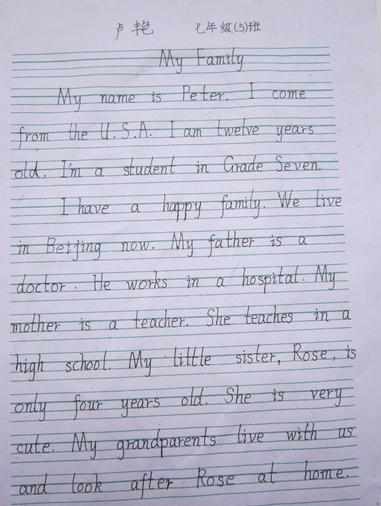 卢艳 七年级(5)班
My Family
My name is Peter. I come
from the U.S.A. I am twelve years
old. I'm a student in Grade Seven.
I have a happy family. We live
in Beijing now. My father is a
doctor. He works in a hospital. My
mother is a teacher. She teaches in a
high school. My little sister, Rose, is
only four years old. She is very
cute. My grandparents live with us
and look after Rose at home.